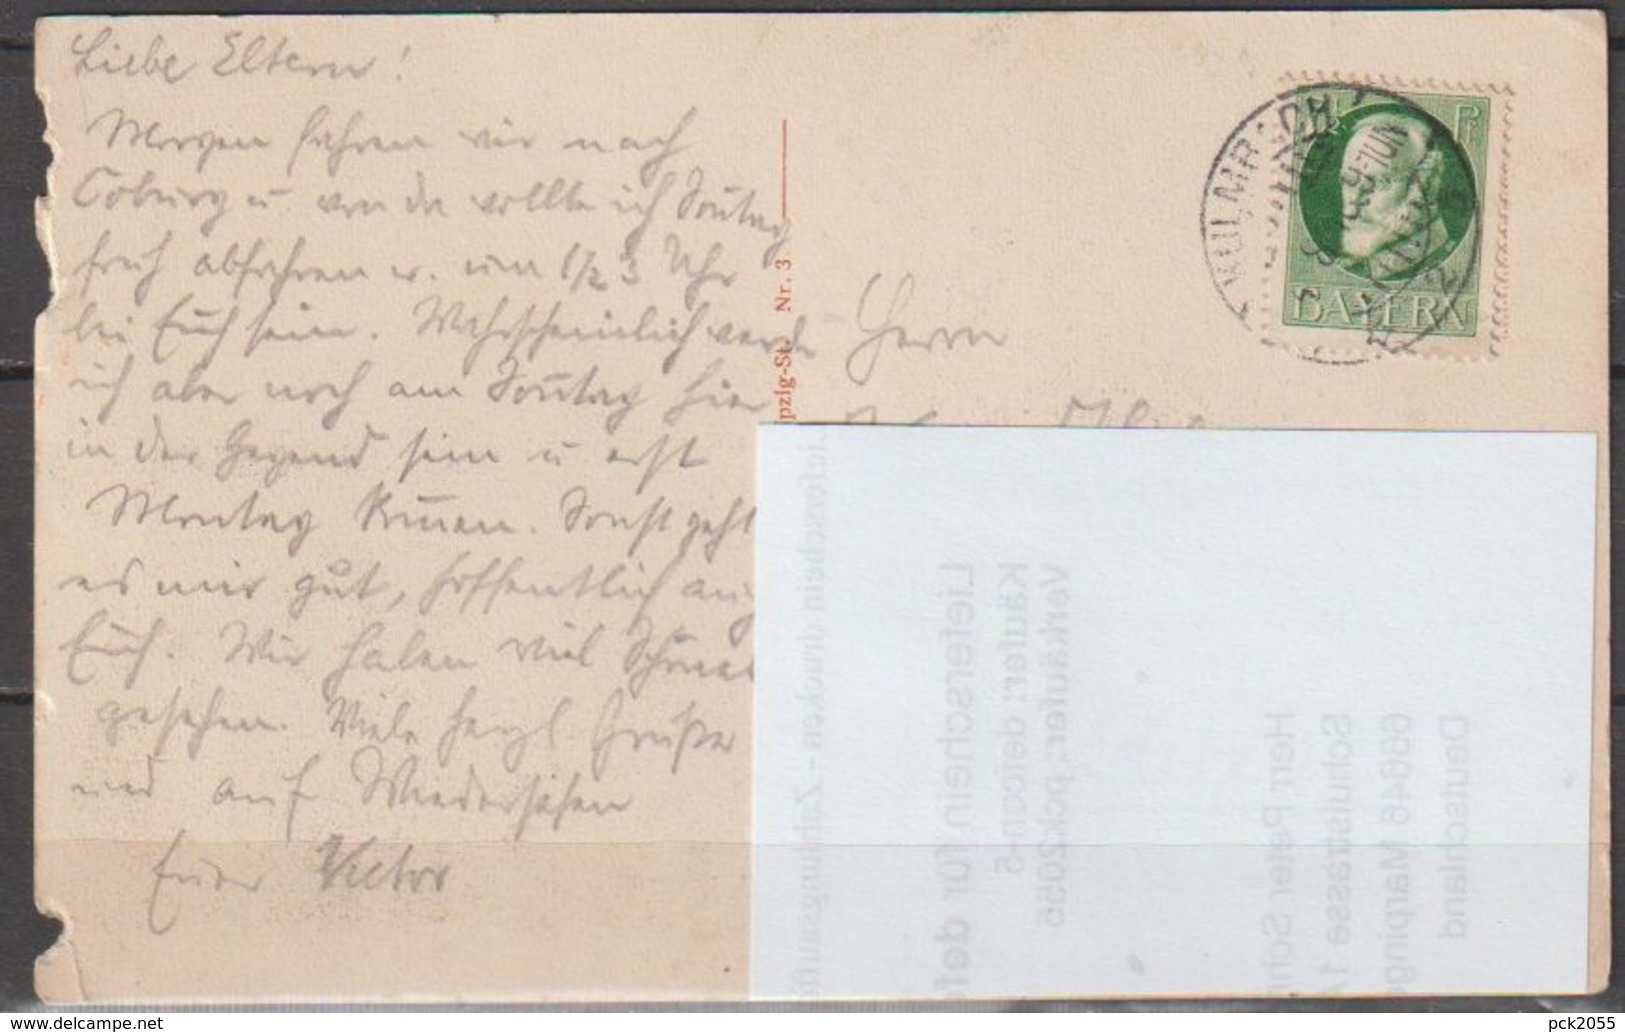 Liebe Eltern!
Morgen fahren wir nach
Coburg u von da wollte ich Sontag
früh abfahren u. um 1/2 3 Uhr
bei Euch sein. Wahrscheinlich werde
ich aber noch am Sontag hier
in der Gegend sein u erst
Montag kommen. Sonst geht
es mir gut, hoffentlich auch
Euch. Wir haben viel Schönes
gesehen. Viele herzl Grüße
und auf Wiedersehen
Euer Victor
pzig-St. Nr. 3
Herrn
KULMBACH
BAYERN
Lieferschein drucken - Zahlungsauffo
Lieferschein für def
Käufer: defcon-5
Verkäufer: pck2055
Herr Peter Sch
Schulstrasse 1
66646 Marping
Deutschland
delcampe.net
pck2055